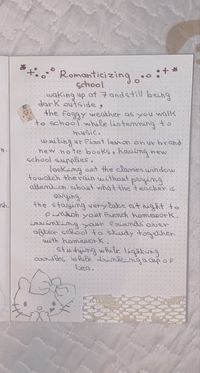 Romanticizing
school
waking up at 7 and still being
dark outside,
the foggy weather as you walk
to school while listenning to
music.
writing ur first lesson on ur brand
new note books, having new
school supplies.
looking out the classes window
to watch the rain without paying
attention about what the teacher is
saying.
the staying very late at night to
finish your french homework.
inviting ur friends over
after school to study together
with homework.
studying while lighting
candles while drinking a cup of
tea.